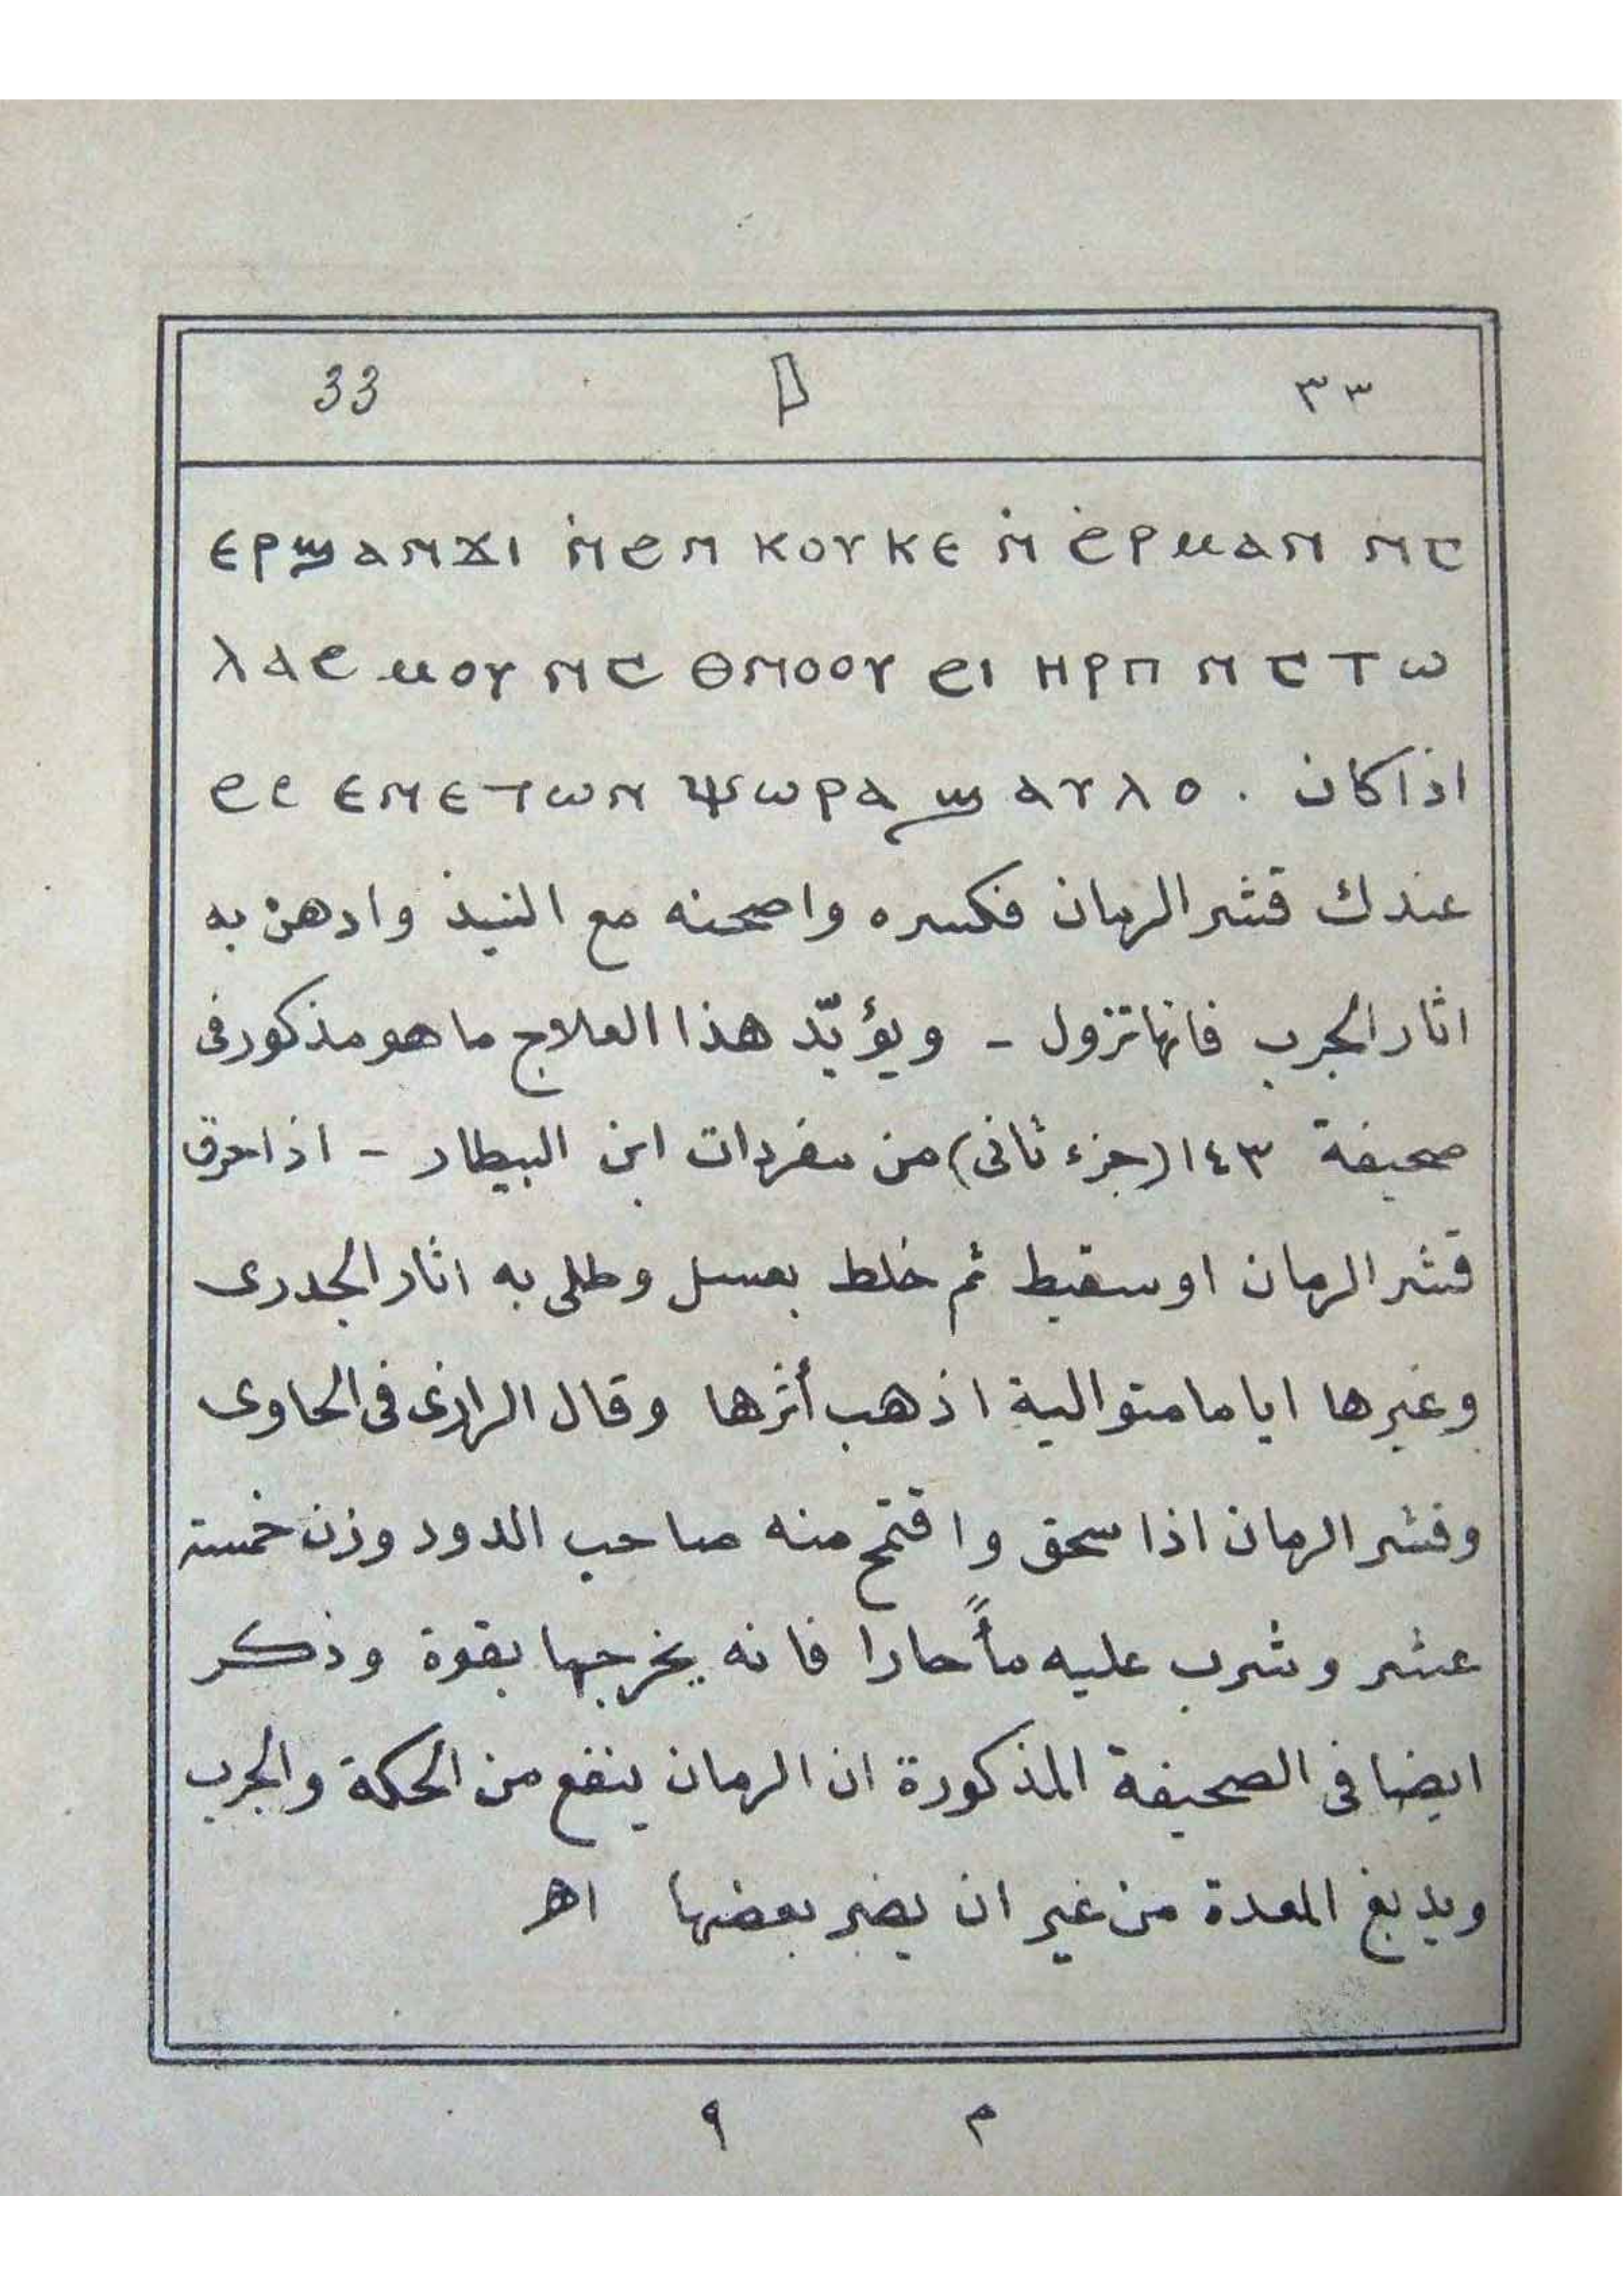 33 ٣٣
ⲉⲣϣⲁⲛϫⲓ ⲛ̇ϩⲉⲛ ⲕⲟⲩⲕⲉ ⲛ̇ ϩⲉⲣⲙⲁⲛ ⲛⲅ
ⲗⲁϩⲙⲟⲩ ⲛⲅ ⲑⲛⲟⲟⲩ ϩⲓ ⲏⲣⲡ ⲛⲅⲧⲱ
ϩⲥ ⲉⲛⲉⲧⲱⲛ ⲯⲱⲣⲁ ϣⲁⲩⲗⲟ . اذا كان
عندك قشر الرمان فكسره واصحنه مع النبيذ وادهن به
اثار الجرب فانها تزول - ويؤيّد هذا العلاج ما هو مذكور فى
صحيفة ١٤٣ (جزء ثانى) من مفردات ابن البيطار - اذا حرق
قشر الرمان او سقيط ثم خلط بعسل وطلى به اثار الجدرى
وغيرها اياما متوالية اذهب أثرها وقال الرازى فى الحاوى
وقشر الرمان اذا سحق واقتمح منه صاحب الدود وزن خمسة
عشر وشرب عليه مأً حارا فانه يخرجها بقوة وذكر
ايضا فى الصحيفة المذكورة ان الرمان ينفع من الحكة والجرب
ويدبغ المعدة من غير ان يضر بعضها اهـ
م ٩